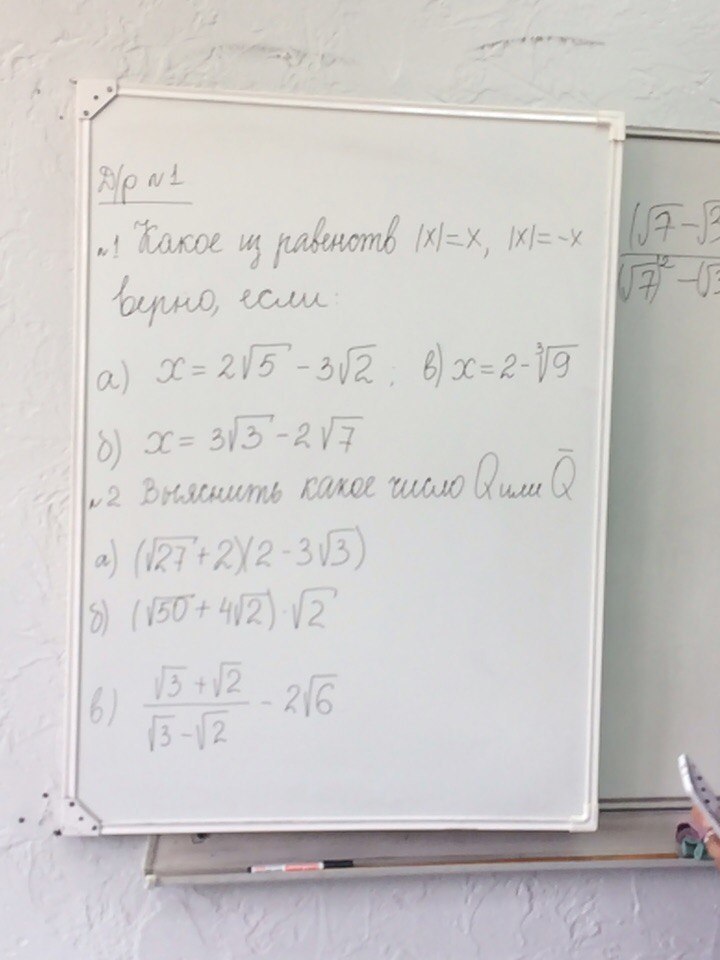 Д/р №1
№1 Какое из равенств |x|=x, |x|=-x
верно, если:
а) x = 2√5 - 3√2 ; в) x = 2 - ∛9
б) x = 3√3 - 2√7
№2 Выяснить какое число Q или Q̄
а) (√27 + 2)(2 - 3√3)
б) (√50 + 4√2) · √2
в) (√3 + √2)/(√3 - √2) - 2√6
(√7 - √3
(√7)² - (√3